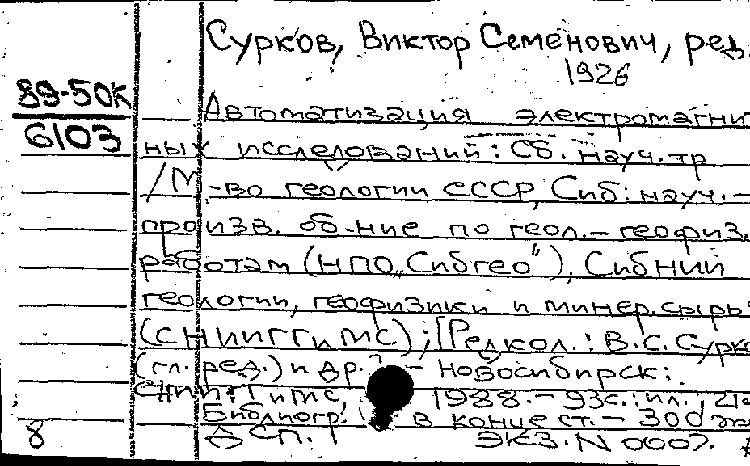 Сурков, Виктор Семенович, ред.
1926
89-50к
6103
Автоматизация электромагнит-
ных исследований: Сб. науч. тр
/М-во геологии СССР, Сиб. науч.-
произв. об-ние по геол.-геофиз.
работам (НПО „Сибгео"), Сиб НИИ
геологии, геофизики и минер. сырья
(СНИИГГиМС); [Редкол.: В.С. Сурко
(гл. ред.) и др.] - Новосибирск:
СНИИГГиМС, 1988. - 93с.: ил., 21с
Библиогр. в конце ст. - 300 эк
ДСП.
Экз. N 0007.
8